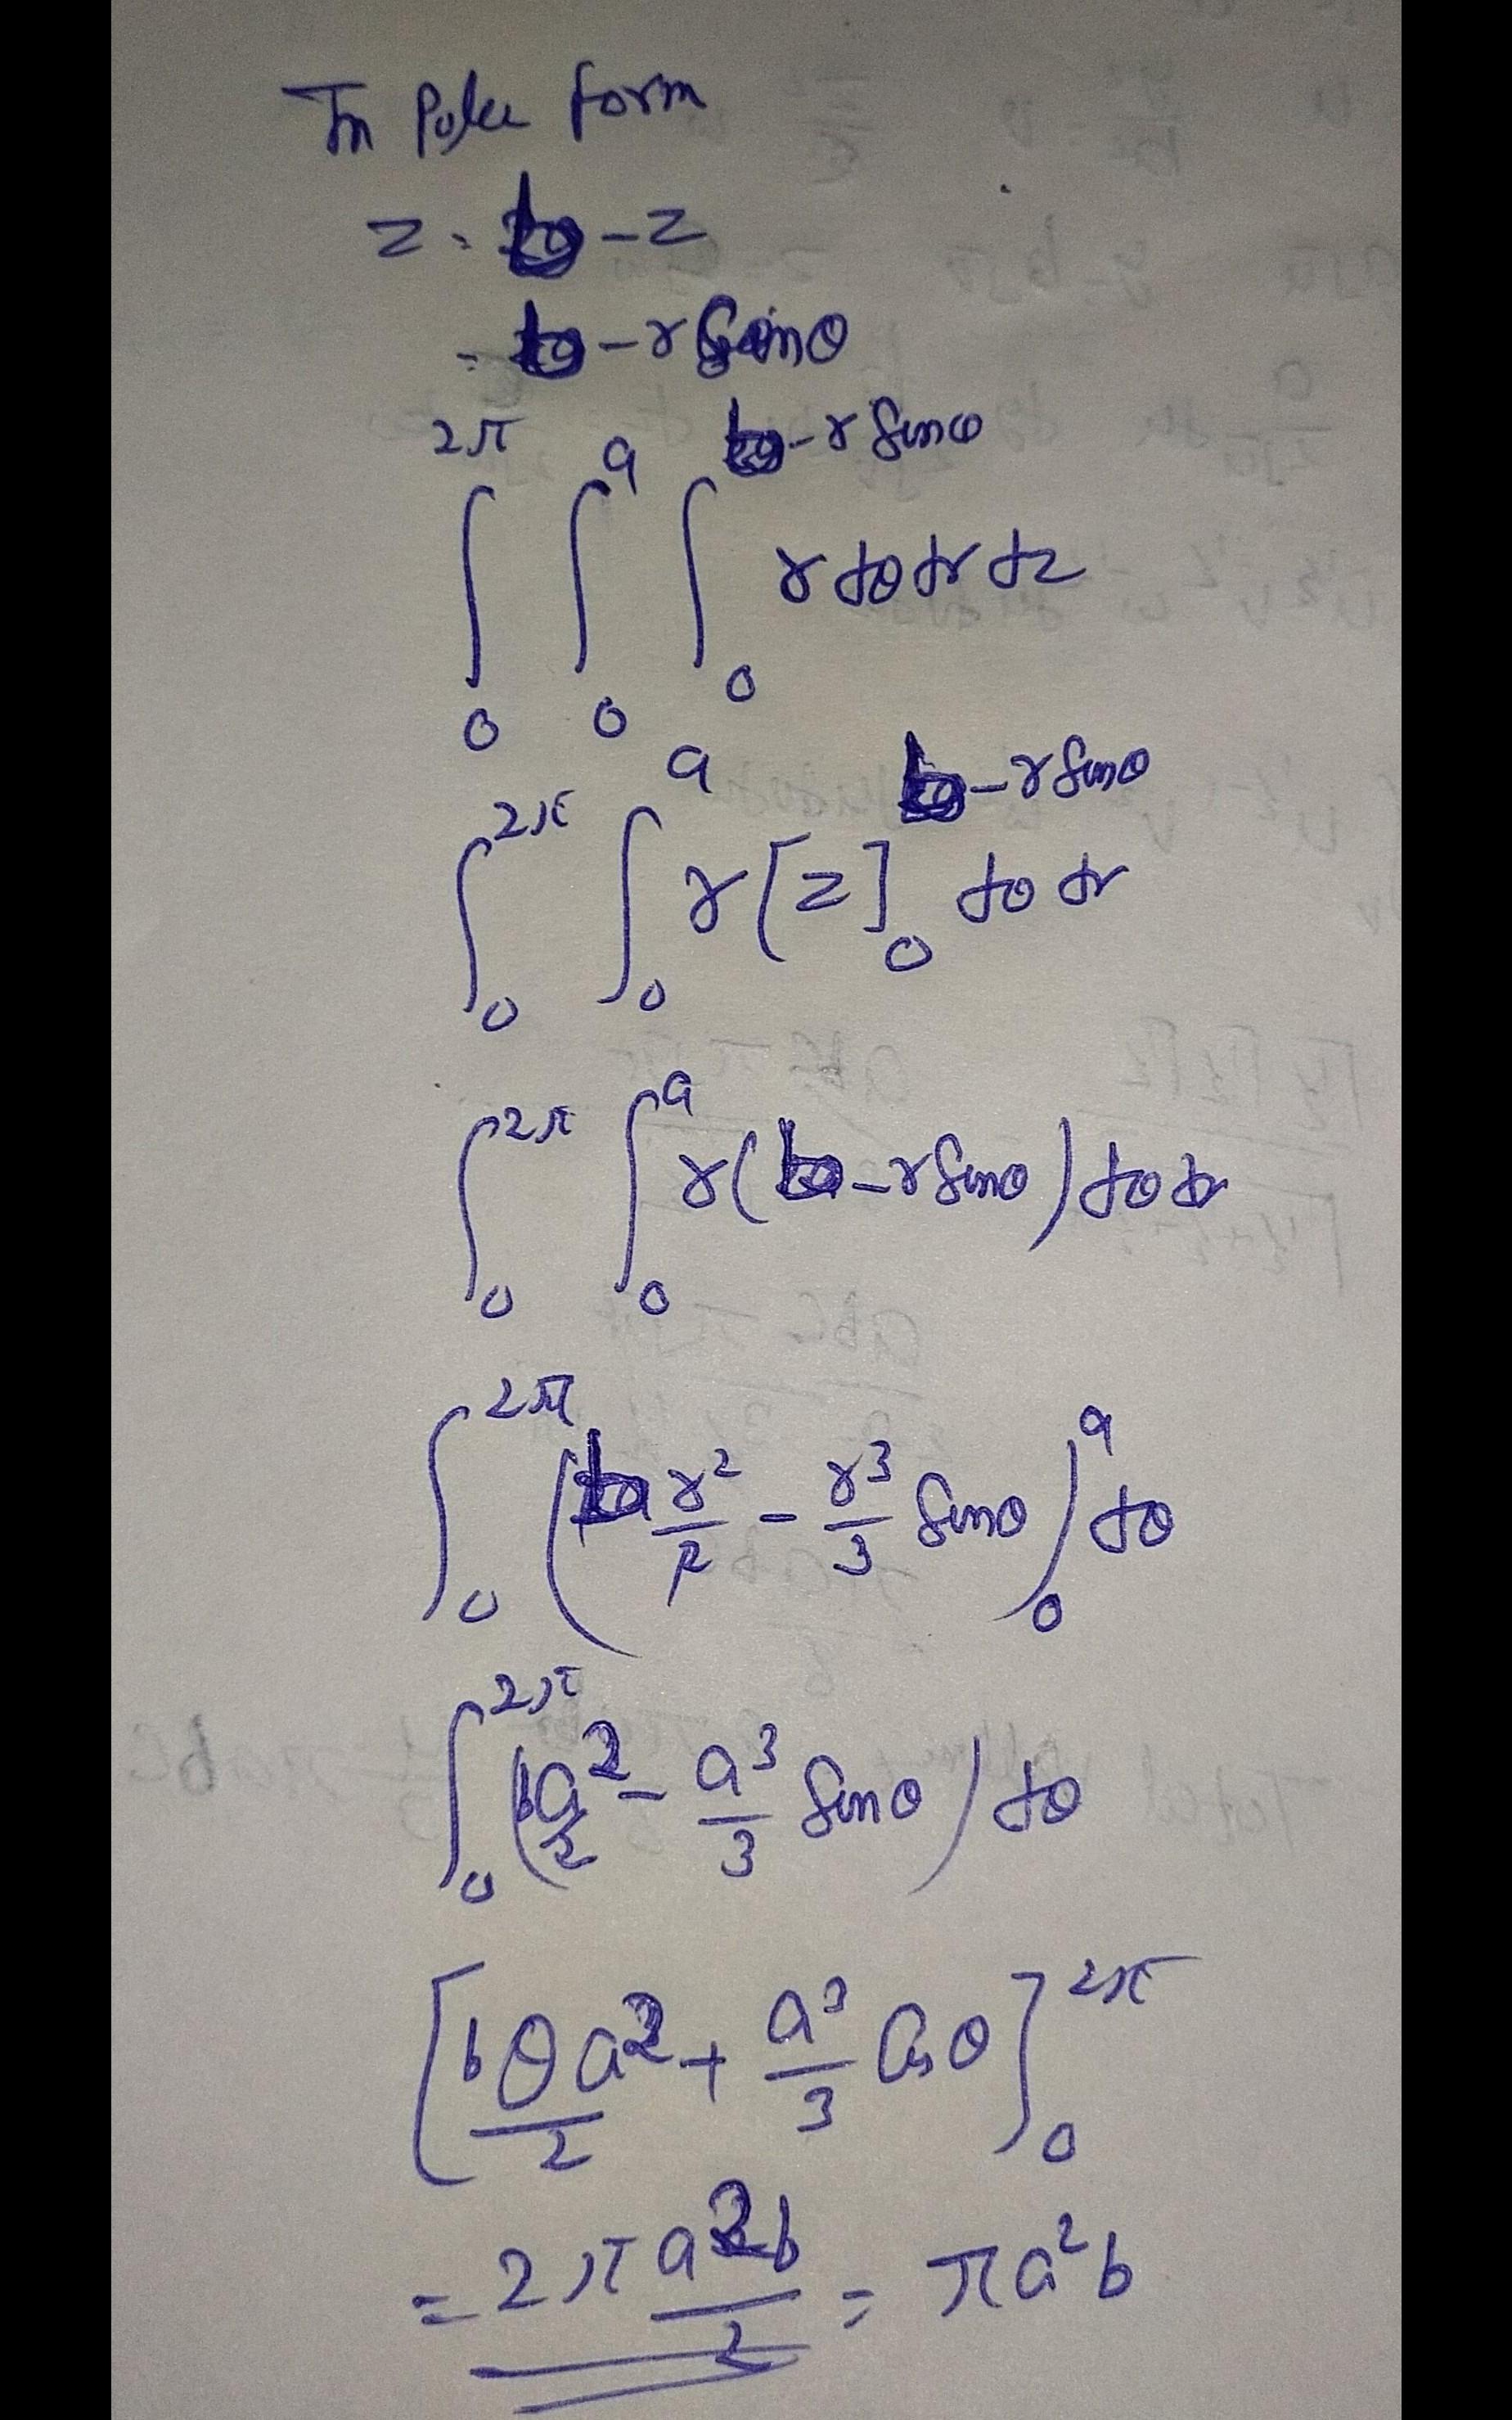 In Polar form
z = b - z
= b - r sinθ
∫₀^{2π} ∫₀^{a} ∫₀^{b - r sinθ} r dθ dr dz
∫₀^{2π} ∫₀^{a} r [z]₀^{b - r sinθ} dθ dr
∫₀^{2π} ∫₀^{a} r (b - r sinθ) dθ dr
∫₀^{2π} (b r²/2 - r³/3 sinθ)₀^{a} dθ
∫₀^{2π} (b a²/2 - a³/3 sinθ) dθ
[bθa²/2 + a³/3 cosθ]₀^{2π}
= 2π a²b/2 = πa²b